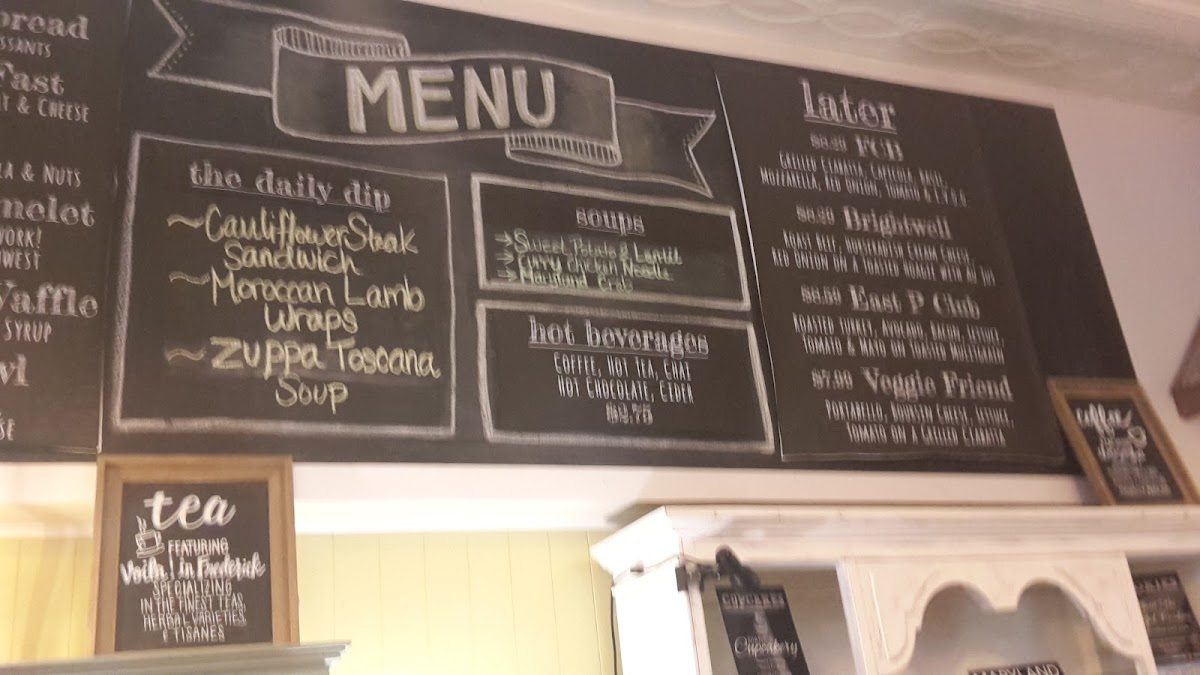 bread
SSANTS
Fast
& CHEESE
& NUTS
melet
WORK!
WEST
Waffle
SYRUP
MENU
the daily dip
~Cauliflower Steak
Sandwich
~Moroccan Lamb
Wraps
~Zuppa Toscana
Soup
soups
→Sweet Potato & Lentil
→Curry Chicken Noodle
→Maryland Crab
hot beverages
COFFEE, HOT TEA, CHAI
HOT CHOCOLATE, CIDER
$2.75
later
FCB
GRILLED CIABATTA, CAPICOLA, BASIL,
MOZZARELLA, RED ONION, TOMATO
Brightwell
ROAST BEEF, HORSERADISH CREAM CHEESE,
RED ONION ON A TOASTED HOAGIE WITH AU JUS
East P Club
ROASTED TURKEY, AVOCADO, BACON, LETTUCE,
TOMATO & MAYO ON TOASTED MULTIGRAIN
$7.99 Veggie Friend
PORTABELLO, BOURSIN CHEESE, LETTUCE,
TOMATO ON A GRILLED CIABATTA
tea
FEATURING
Voila! in Frederick
SPECIALIZING
IN THE FINEST TEAS,
HERBAL VARIETIES,
& TISANES
coffee
CUPCAKES
Cupcakery
MARYLAND